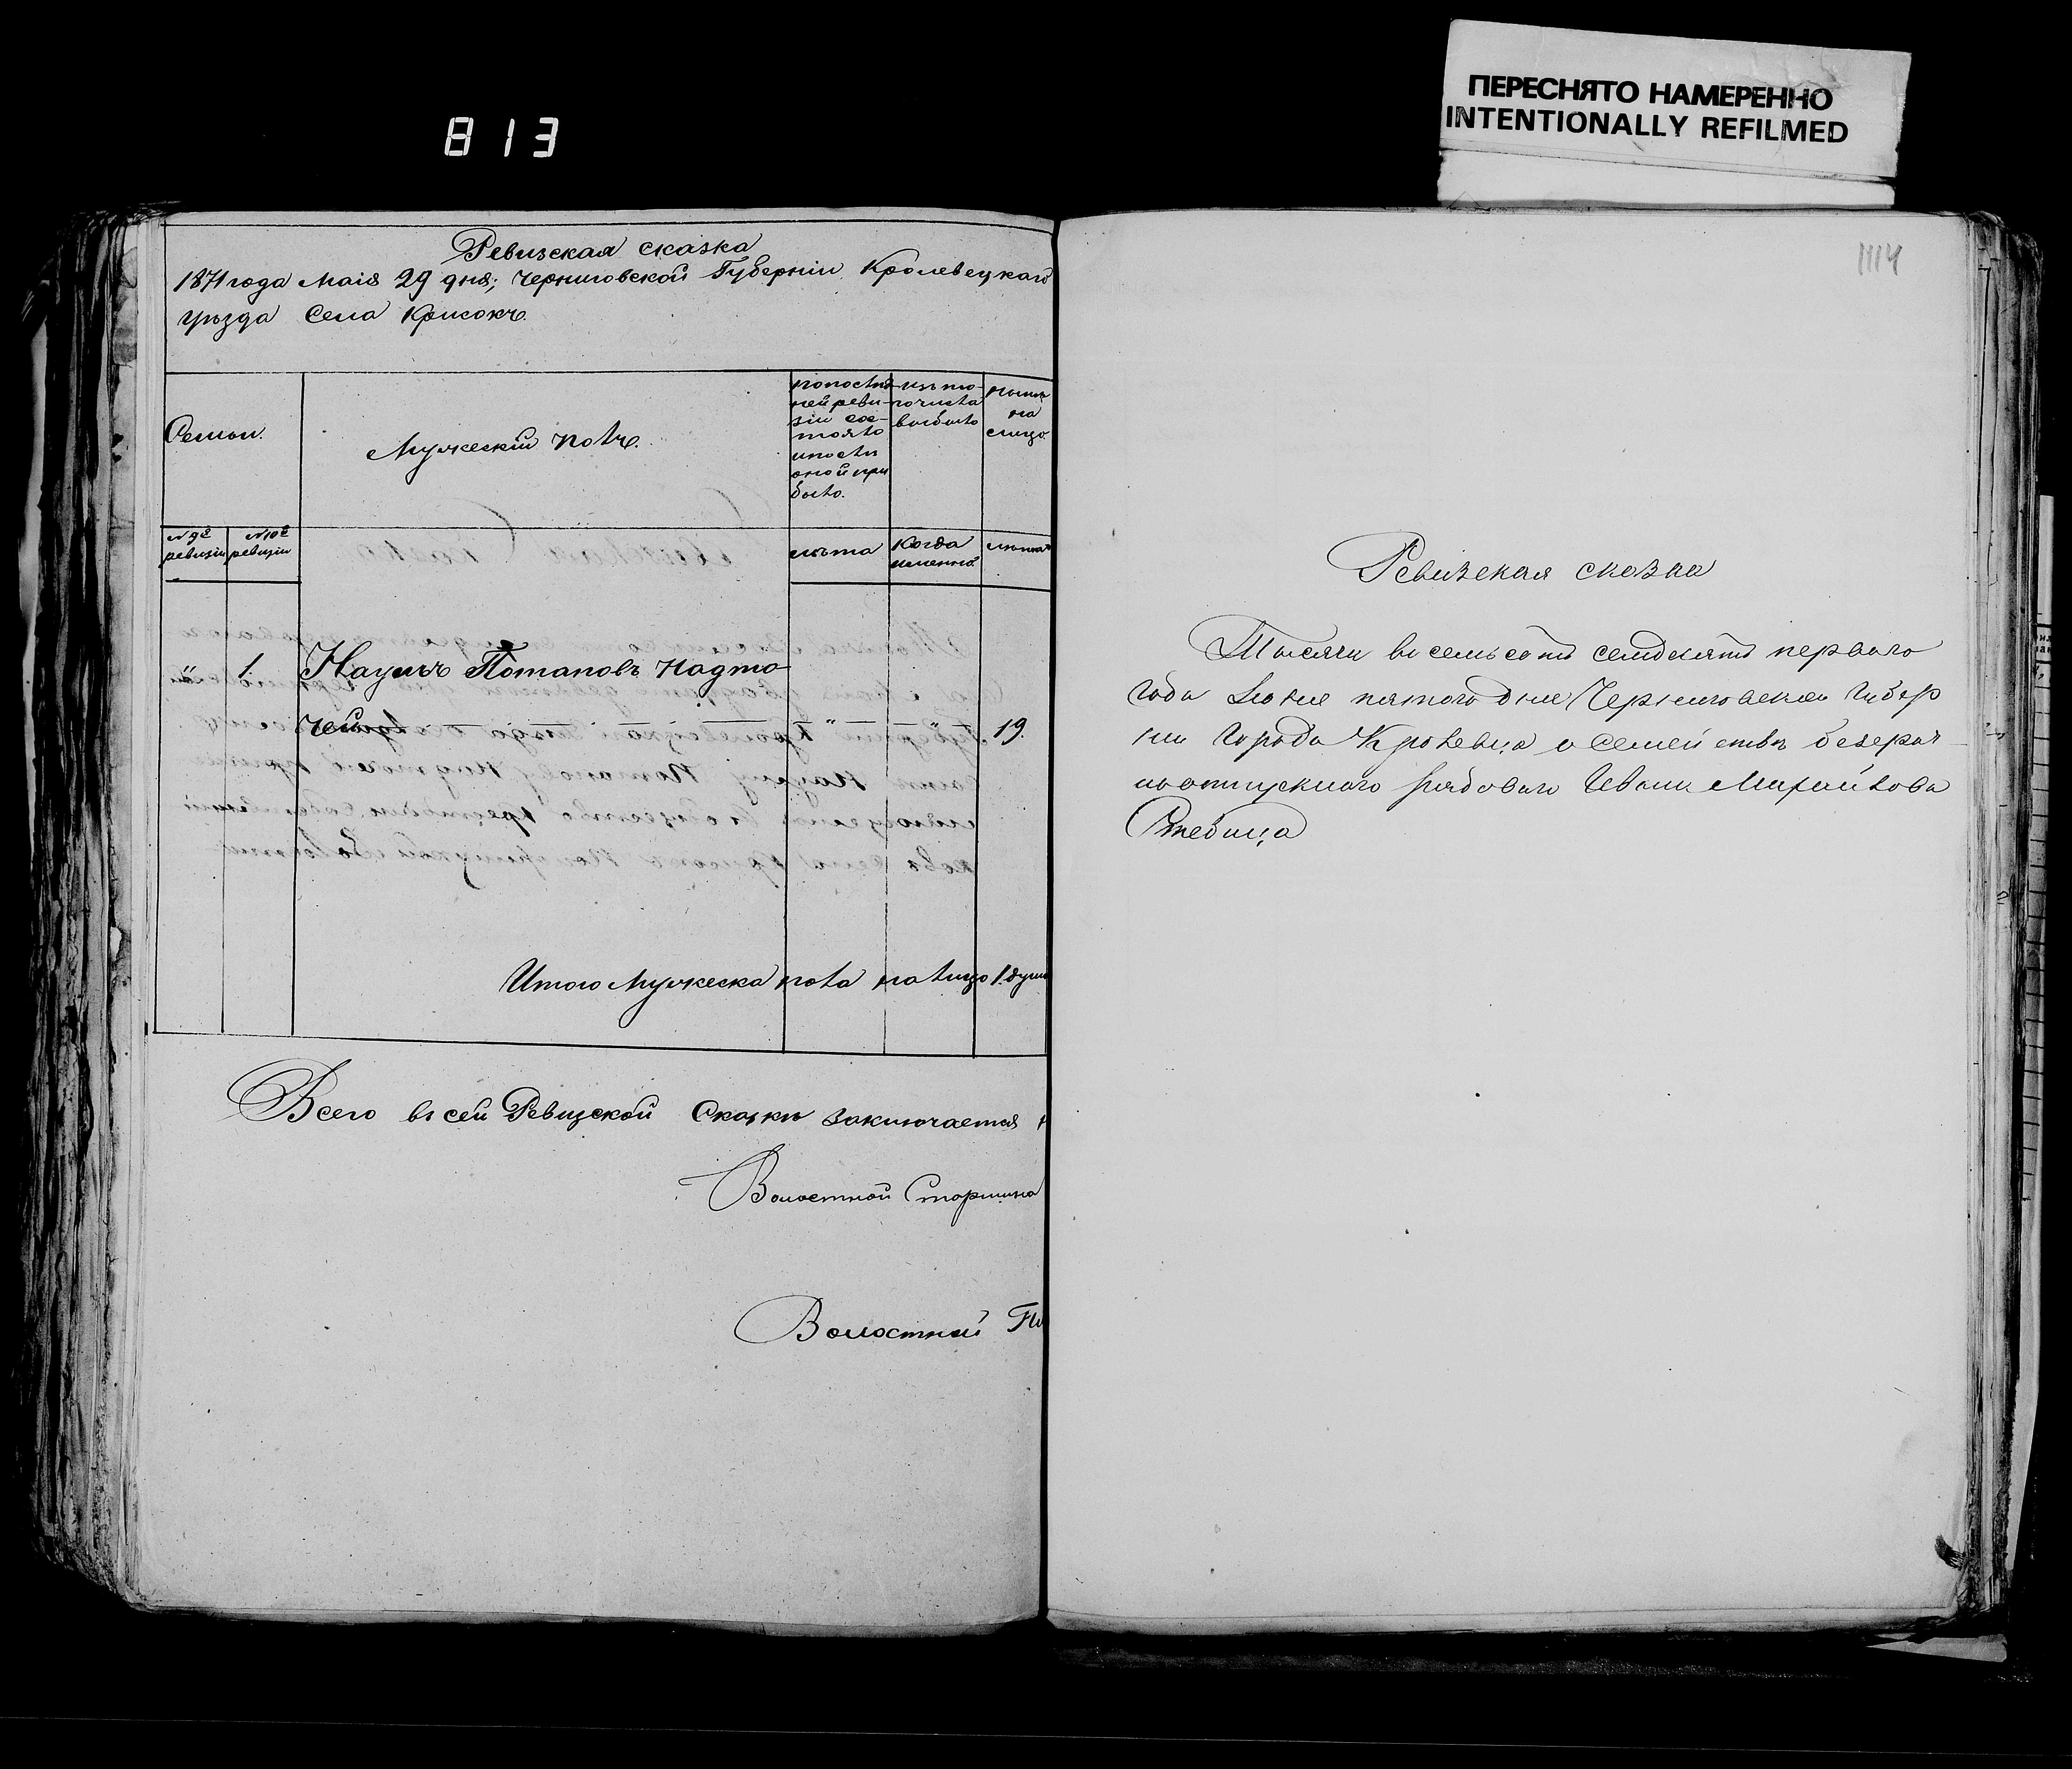 813
ПЕРЕСНЯТО НАМЕРЕННО
INTENTIONALLY REFILMED
Ревизская сказка
1871 года Маія 29 дня; Черниговской Губерніи Кролевецкаго
уѣзда Села Крисокъ.
Семьи.
Мужескій полъ.
По послѣд
ней реви-
зіи сос-
тояло
и послѣ
оной при
было.
изъ то-
го числа
выбыло
нынѣ
на
лицо
№ 9й
ревизіи
№ 10й
ревизіи
лѣта
Когда
именно
лѣта
" 1. Наумъ Потаповъ Надто
чей " " 19.
Итого Мужеска пола на лицо 1. душа
Всего въ сей Ревизской Сказкѣ заключается
Волостной Старшина
Волостной
1114
Ревизская сказка
Тысяча восемьсотъ семдесятъ перваго
года Іюня пятого дня Черниговской Губер
ніи Города Кролевца о семействѣ безсроч
ноотпускного рядового Ивана Михайлова